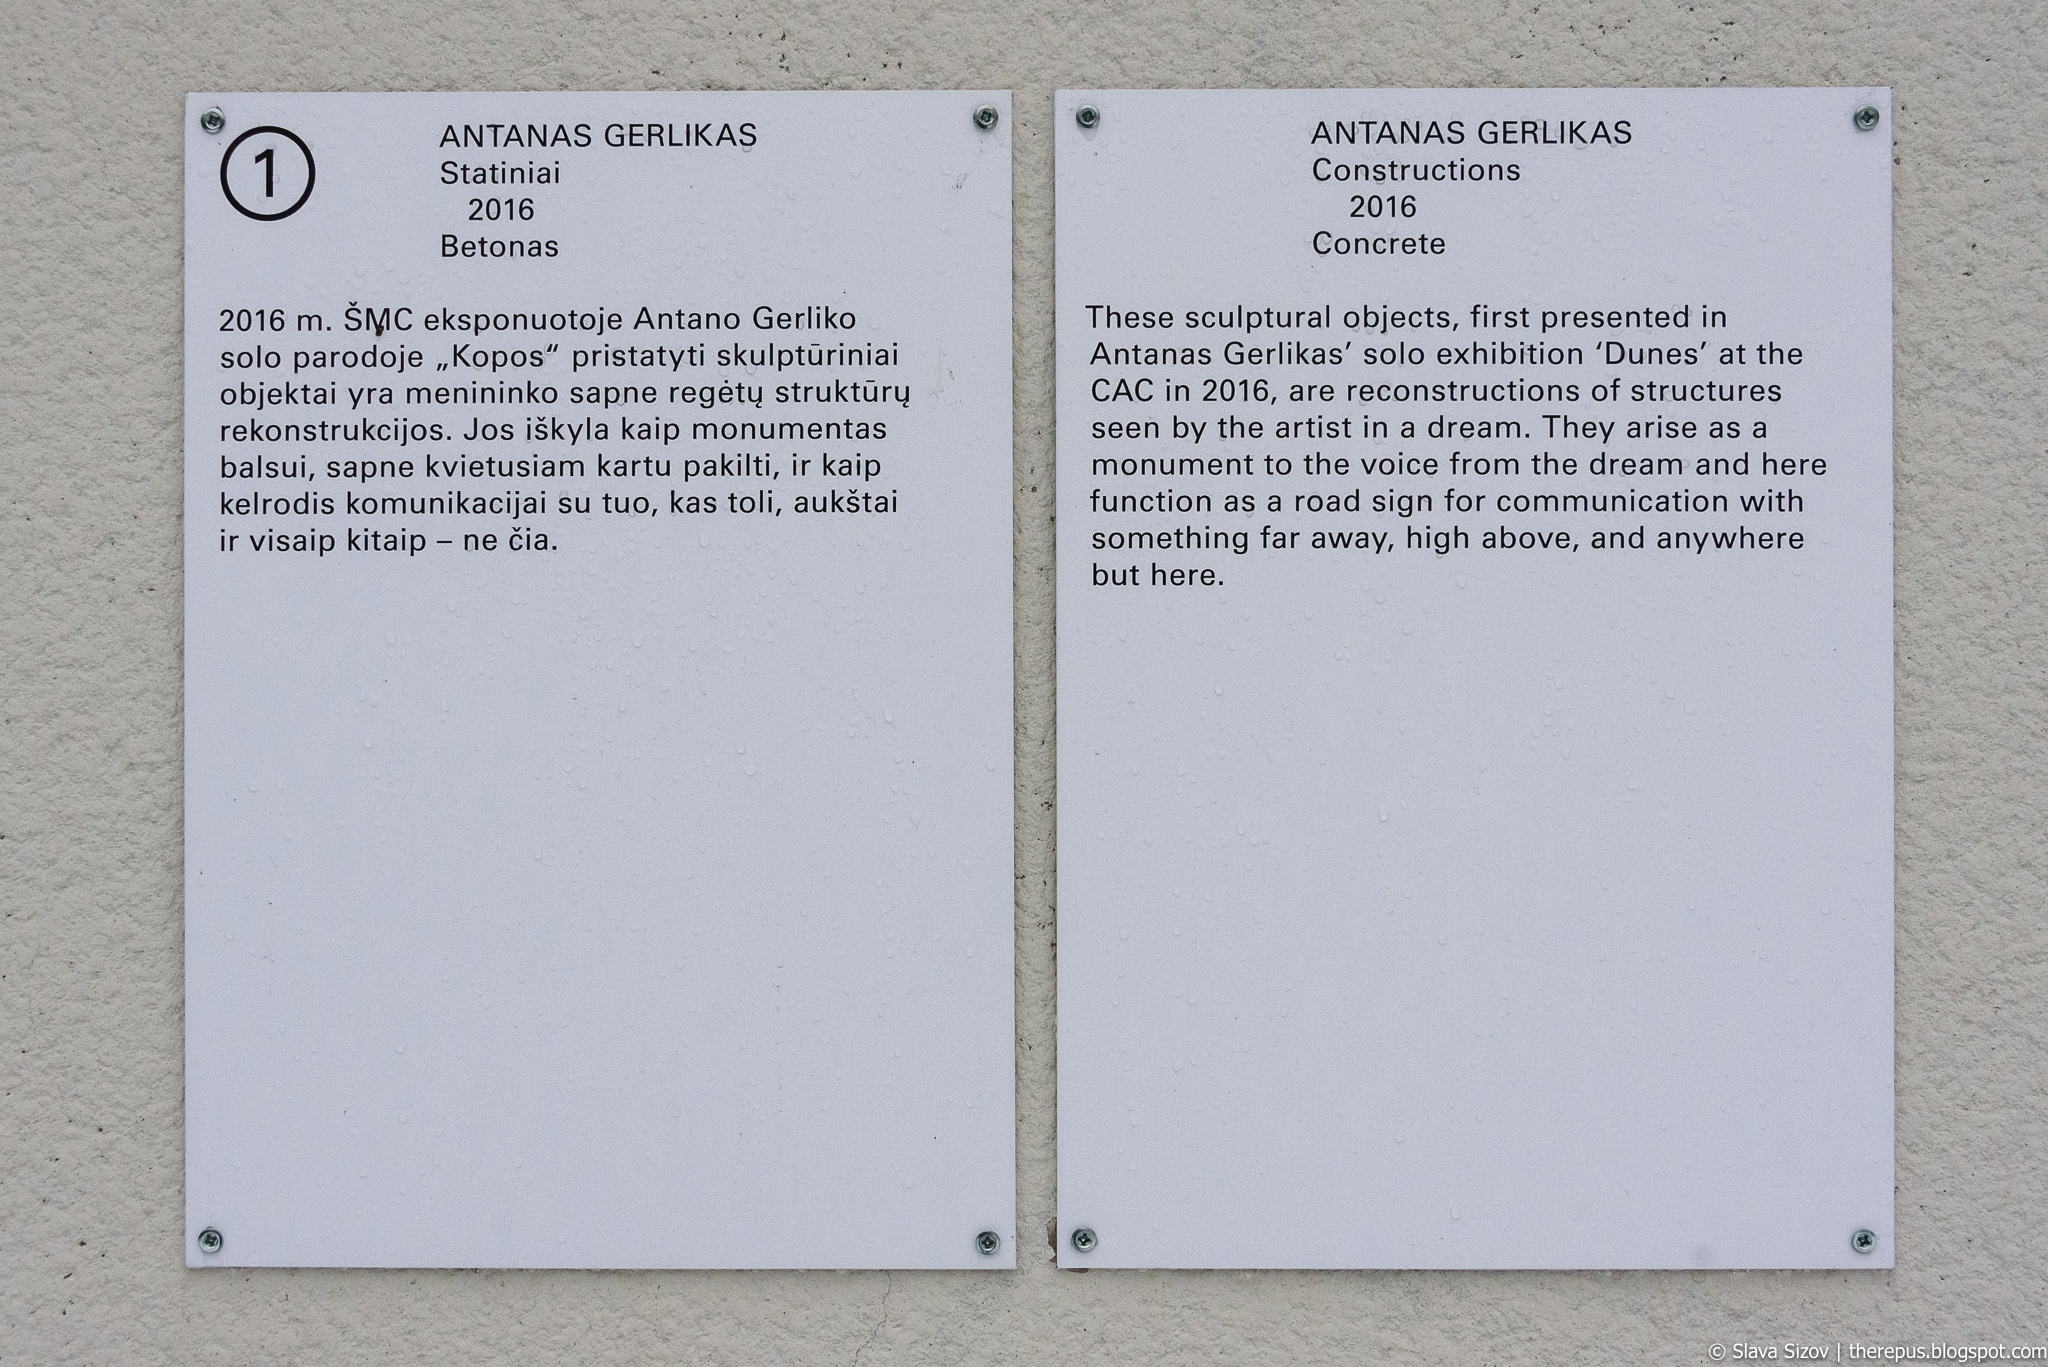 1
ANTANAS GERLIKAS
Statiniai
2016
Betonas
2016 m. ŠMC eksponuotoje Antano Gerliko
solo parodoje „Kopos“ pristatyti skulptūriniai
objektai yra menininko sapne regėtų struktūrų
rekonstrukcijos. Jos iškyla kaip monumentas
balsui, sapne kvietusiam kartu pakilti, ir kaip
kelrodis komunikacijai su tuo, kas toli, aukštai
ir visaip kitaip – ne čia.
ANTANAS GERLIKAS
Constructions
2016
Concrete
These sculptural objects, first presented in
Antanas Gerlikas’ solo exhibition ‘Dunes’ at the
CAC in 2016, are reconstructions of structures
seen by the artist in a dream. They arise as a
monument to the voice from the dream and here
function as a road sign for communication with
something far away, high above, and anywhere
but here.
© Slava Sizov | therepus.blogspot.com